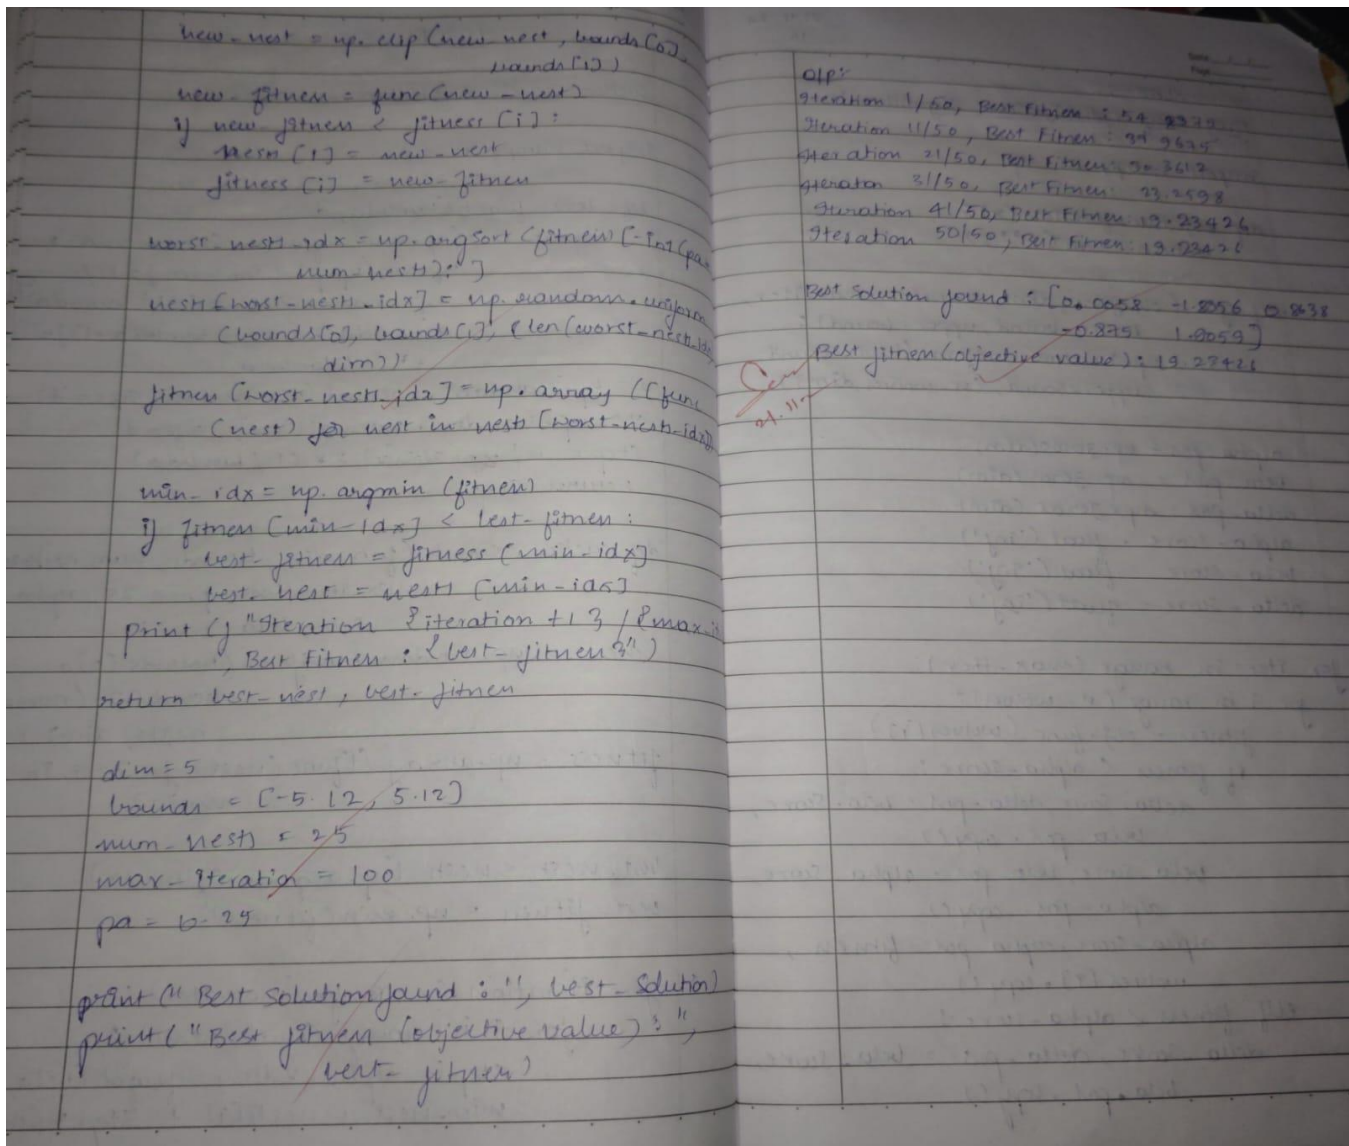 new_nest = np.clip(new_nest, bounds[0],
bounds[1])
new_fitness = func(new-nest)
if new_fitness < fitness[i]:
nests[i] = new-nest
fitness[i] = new-fitness
worst_nests_idx = np.argsort(fitness)[-int(pa*
num-nests):]
nests[worst-nests-idx] = np.random.uniform
(bounds[0], bounds[1], (len(worst-nests-idx
dim))
fitness[worst-nests-idx] = np.array([func
(nest) for nest in nests[worst-nests-idx]]
min-idx = np.argmin(fitness)
if fitness[min-idx] < best-fitness:
best-fitness = fitness[min-idx]
best_nest = nests[min-idx]
print(f"Iteration {iteration +1} / {max-it
, Best Fitness: {best-fitness}")
return best-nest, best-fitness
dim = 5
bounds = [-5.12, 5.12]
num-nests = 25
max-iteration = 100
pa = 0.25
print("Best Solution found : ", best-solution)
print("Best fitness (objective value) : ",
best-fitness)
O/P:
Iteration 1/50, Best Fitness :
Iteration 11/50, Best Fitness :
Iteration 21/50, Best Fitness :
Iteration 31/50, Best Fitness: 23.2598
Iteration 41/50, Best Fitness: 19.23426
Iteration 50/50, Best Fitness: 19.23426
Best Solution found : [0.0058 -1.8956 0.8638
-0.875 1.0059]
Best fitness (objective value) : 19.23426